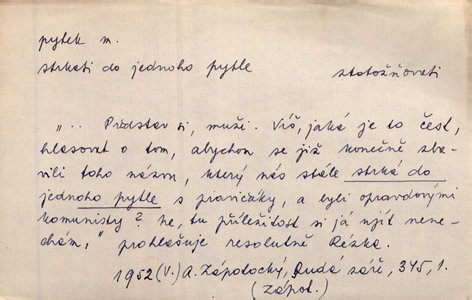 pytek m.
strkati do jednoho pytle
ztotožňovati
„.. Představ si, muži. Víš, jaká je to čest,
hlasovat o tom, abychom se již konečně zba-
vili toho názvu, který nás stále strká do
jednoho pytle s pravičáky, a byli opravdovými
komunisty? Ne, tu příležitost si já ujít nene-
chám," prohlašuje resolutně Rézka.
1952 (V.) A. Zápotocký, Rudá záře, 345, 1.
(Zápot.)